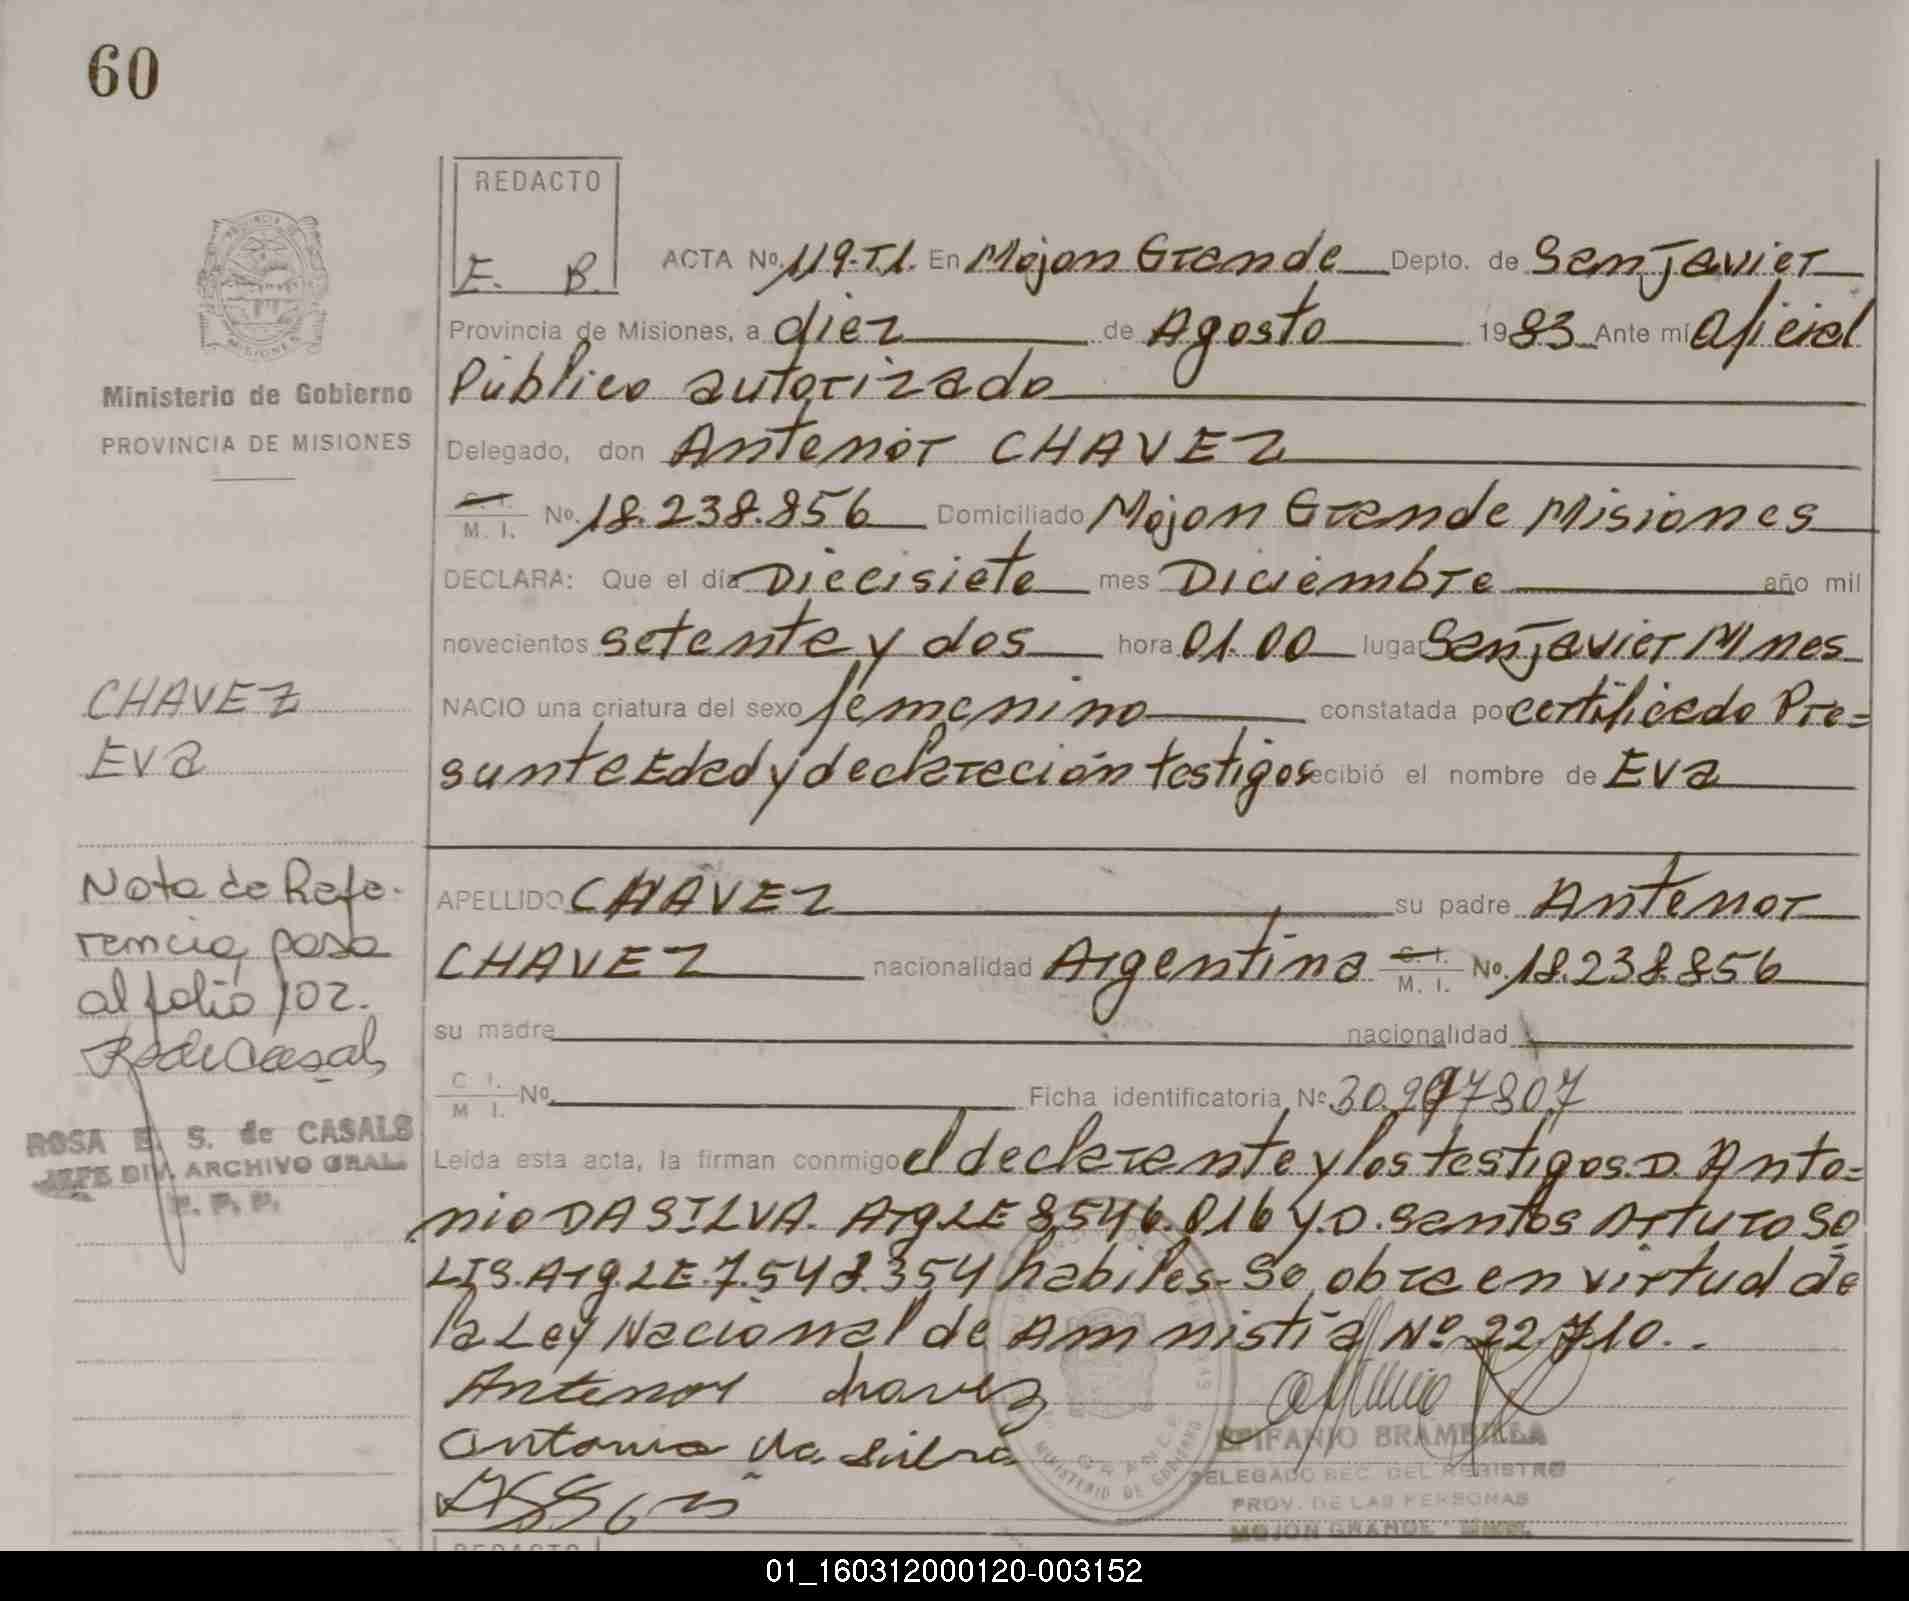 60
REDACTO
E. B.
ACTA No. 119-T1. En Mojon Grande Depto. de San Javier
Provincia de Misiones, a diez de Agosto 1983 Ante mí Oficial
Público autorizado
Ministerio de Gobierno
PROVINCIA DE MISIONES
Delegado, don Antenor CHAVEZ
C. I.
M. I. No. 18.238.856 Domiciliado Mojon Grande Misiones
DECLARA: Que el día Diecisiete mes Diciembre año mil
novecientos setenta y dos hora 01.00 lugar San Javier Mnes
CHAVEZ
EVa
NACIO una criatura del sexo femenino constatada por certificado Pre=
sunta Edad y declaración testigos recibió el nombre de EVa
Nota de Refe-
rencia, pasa
al folio 102.
ROSA E. S. de CASALS
JEFE DIV. ARCHIVO GRAL.
R. P. P.
APELLIDO CHAVEZ su padre Antenor
CHAVEZ nacionalidad Argentina C. I. M. I. No. 18.238.856
su madre nacionalidad
C. I.
M. I. No. Ficha identificatoria No. 30.297807
Leída esta acta, la firman conmigo el declarante y los testigos. D. Anto=
nio DA SILVA. Arg LE 8.546.016 y D. Santos Arturo SO
LIS. Arg. LE. 7.548.354 habiles- Se, obra en virtud de
la Ley Nacional de Amnistía No. 22.710..
Antenor chavez
Antonio da silva
EPIFANIO BRAMBILLA
DELEGADO SEC. DEL REGISTRO
PROV. DE LAS PERSONAS
MOJON GRANDE - MNES.
MINISTERIO DE GOBIERNO
REDACTO
01_160312000120-003152